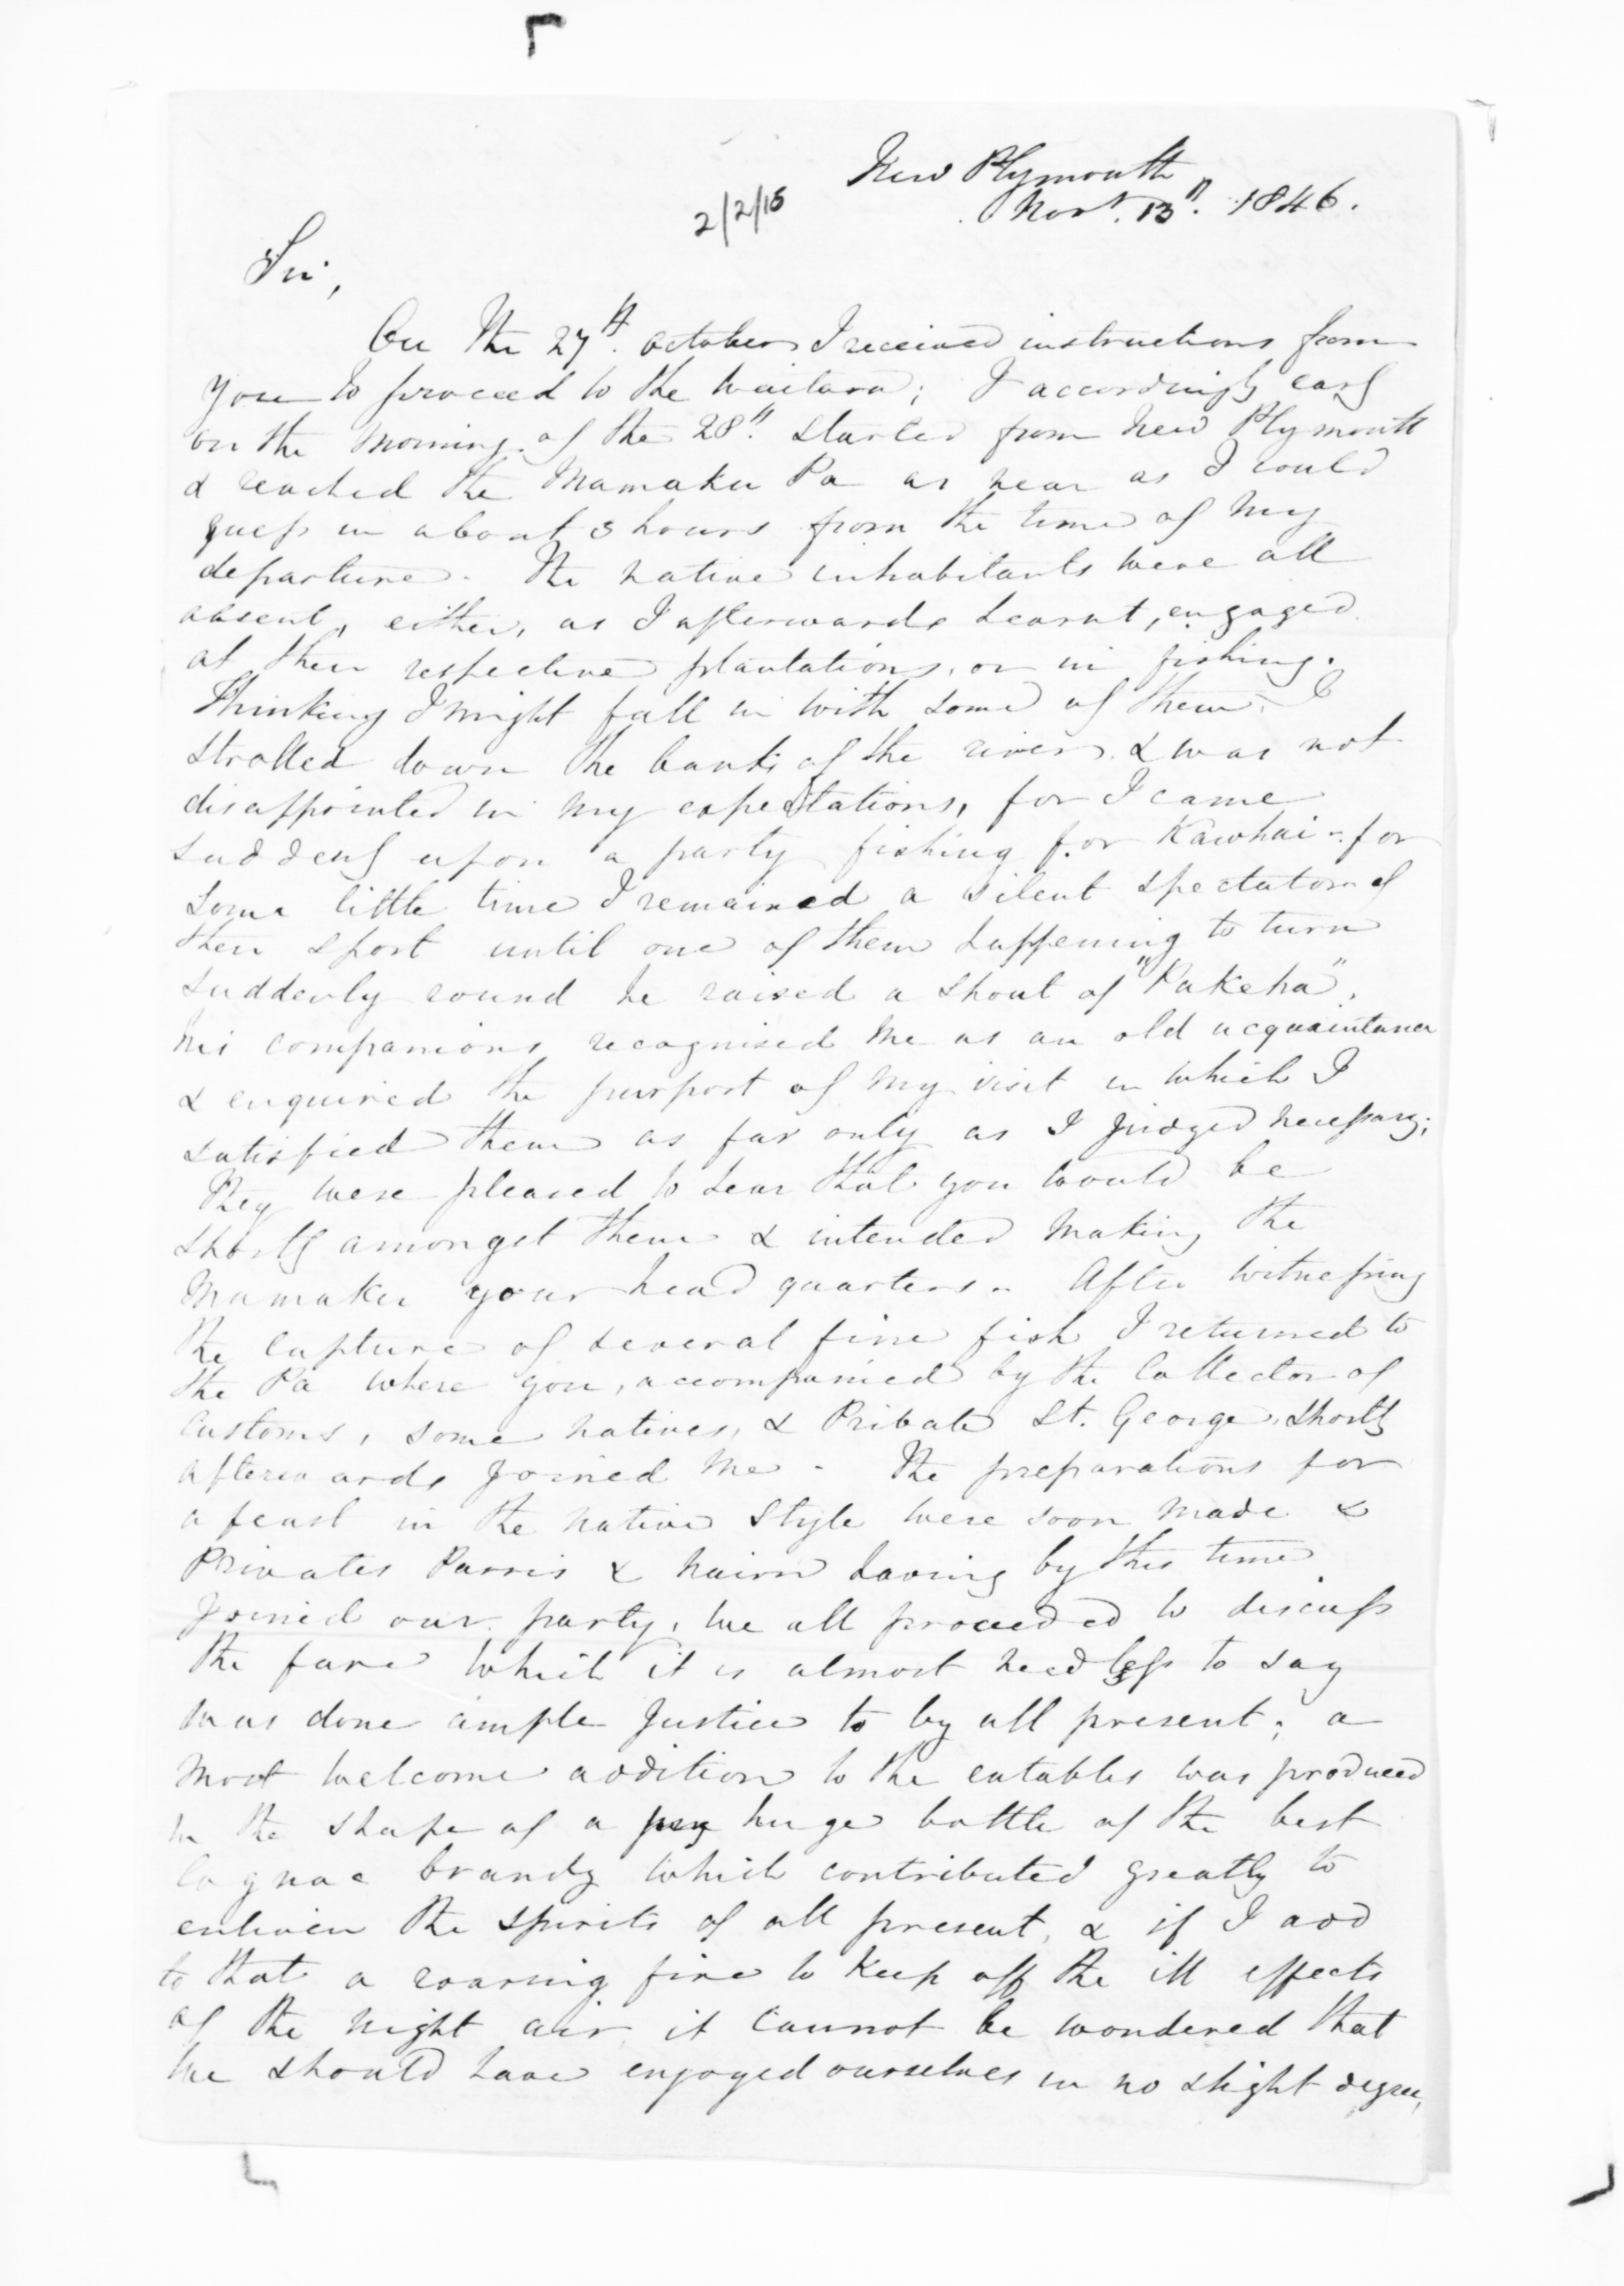 New Plymouth
2/2/15
Novr. 13th. 1846.
Sir,
On the 27th. October I received instructions from
you to proceed to the Waitara; I accordingly early
on the morning of the 28th. started from New Plymouth
& reached the Mamaku Pa as near as I could
guess in about 3 hours from the time of my
departure. The native inhabitants were all
absent, either, as I afterwards learnt, engaged
at their respective plantations, or in fishing.
Thinking I might fall in with some of them, I
strolled down the banks of the river, & was not
disappointed in my expectations, for I came
suddenly upon a party fishing for Kawhai - for
some little time I remained a silent spectator of
their sport until one of them happening to turn
suddenly round he raised a shout of "Pakeha",
his companions recognised me as an old acquaintance
& enquired the purport of my visit in which I
satisfied them as far only as I judged necessary;
They were pleased to hear that you would be
shortly amongst them & intended making the
Mamaku your head quarters. After witnessing
the capture of several fine fish I returned to
the Pa where you, accompanied by the Collector of
Customs, some natives, & Private St. George, shortly
afterwards joined me - The preparations for
a feast in the native style were soon made &
Privates Parris & Nairn having by this time
joined our party, we all proceeded to discuss
the fare which it is almost needless to say
was done ample justice to by all present; a
most welcome addition to the eatables was produced
in the shape of a huge bottle of the best
Cognac brandy which contributed greatly to
enliven the spirits of all present, & if I add
to that a roaring fire to keep off the ill effects
of the night air, it cannot be wondered that
we should have enjoyed ourselves in no slight degree,